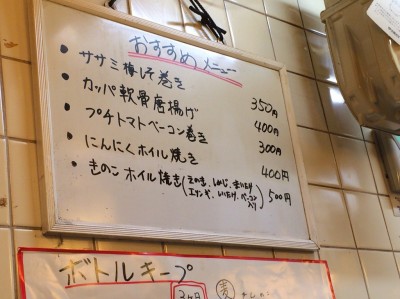 おすすめメニュー
・ササミ梅しそ巻き 350円
・カッパ軟骨唐揚げ 400円
・プチトマトベーコン巻き 300円
・にんにくホイル焼き 400円
・きのこホイル焼き(えのき、しめじ、まいたけ 500円
エリンギ、しいたけ、ベーコン入り)
ボトルキープ
3ヶ月
麦